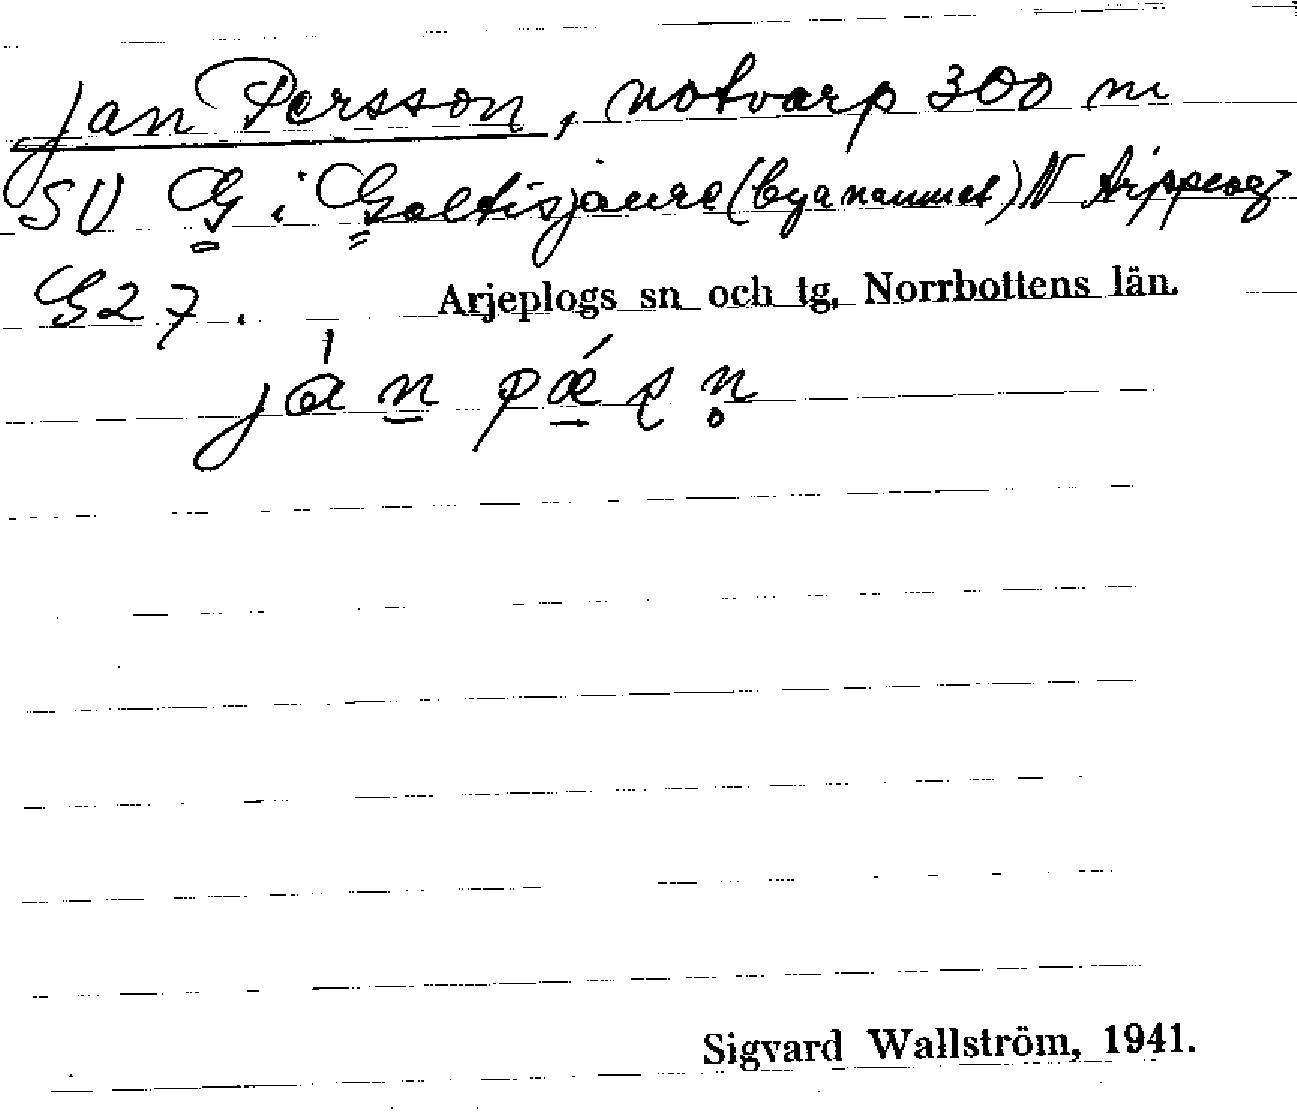 Jan Persson, notvarp 300 m
SV G i Galtisjaure (byanamnet) N Arjeplog
G27.
Arjeplogs sn och tg, Norrbottens län.
jàn
Sigvard Wallström, 1941.